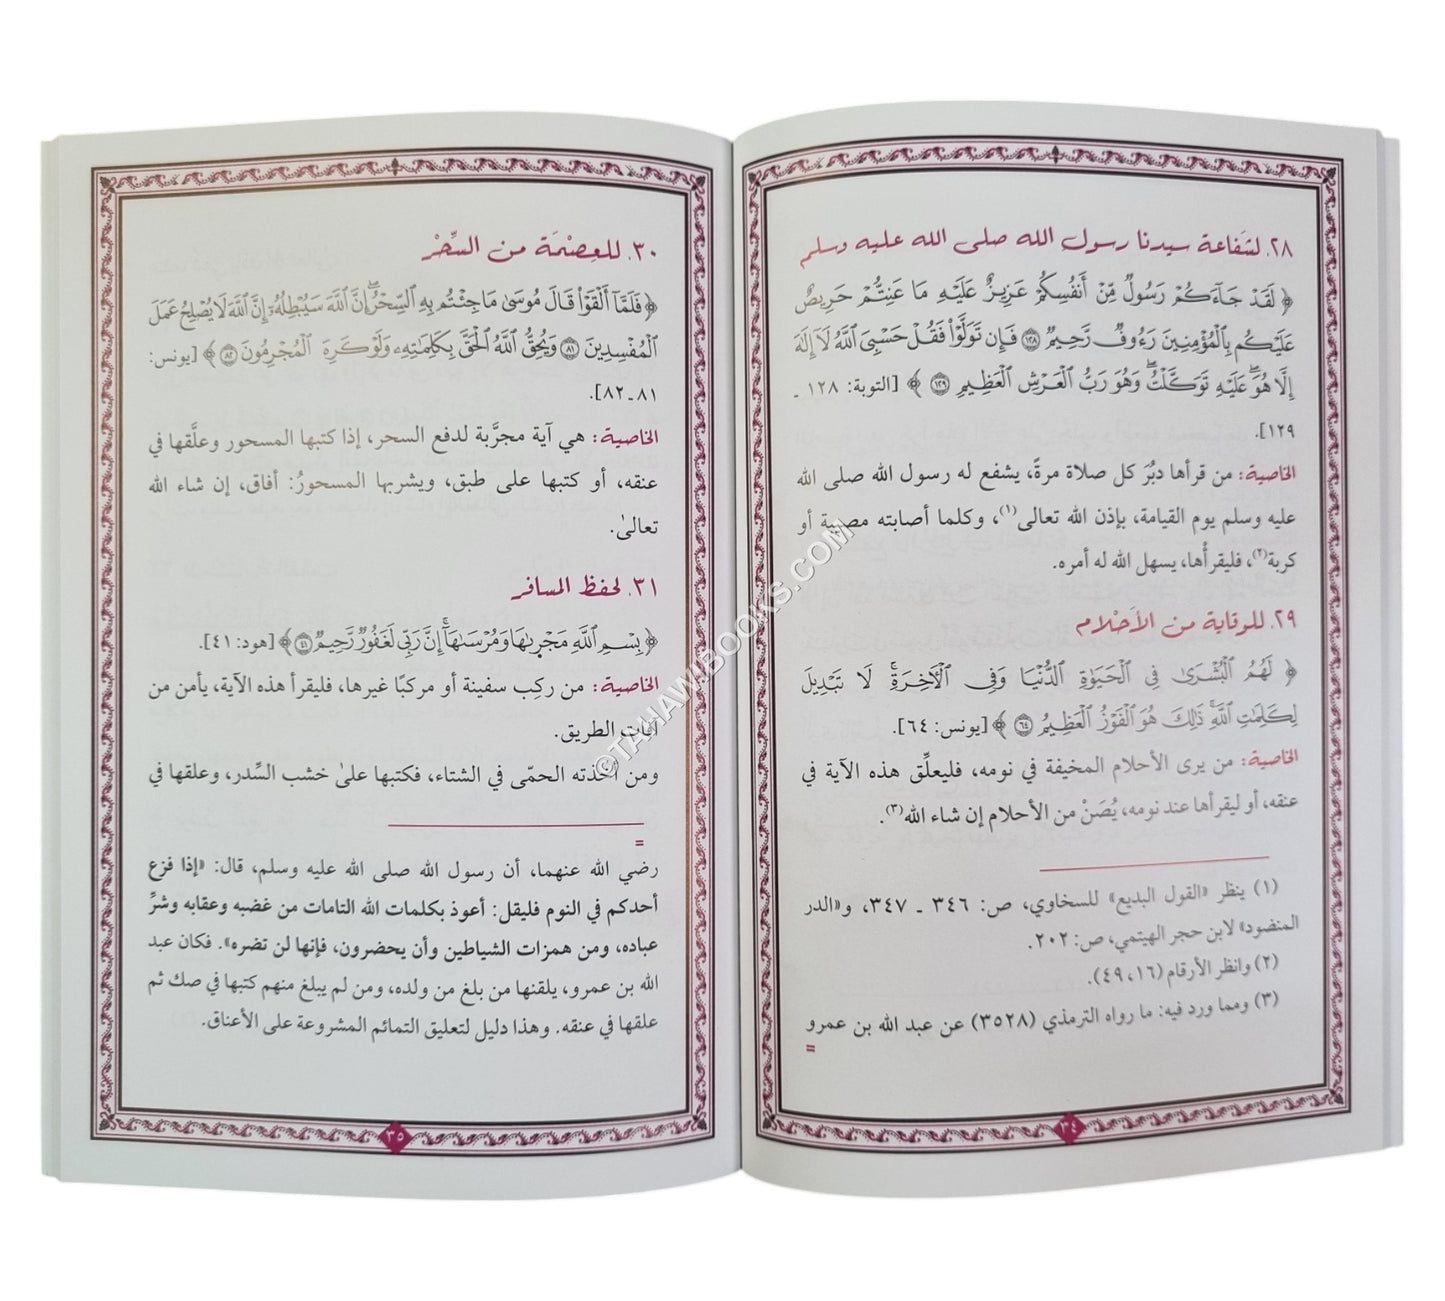 ٢٨. لشفاعة سيدنا رسول الله صلى الله عليه وسلم
﴿ لَقَدْ جَاءَكُمْ رَسُولٌ مِّنْ أَنفُسِكُمْ عَزِيزٌ عَلَيْهِ مَا عَنِتُّمْ حَرِيصٌ
عَلَيْكُم بِالْمُؤْمِنِينَ رَءُوفٌ رَّحِيمٌ ﴿١٢٨﴾ فَإِن تَوَلَّوْا فَقُلْ حَسْبِيَ اللَّهُ لَا إِلَٰهَ
إِلَّا هُوَ عَلَيْهِ تَوَكَّلْتُ وَهُوَ رَبُّ الْعَرْشِ الْعَظِيمِ ﴿١٢٩﴾ ﴾ [التوبة: ١٢٨ ـ
١٢٩].
الخاصية: من قرأها دبُرَ كل صلاة مرةً، يشفع له رسول الله صلى الله
عليه وسلم يوم القيامة، بإذن الله تعالى(١)، وكلما أصابته مصيبة أو
كربة(٢)، فليقرأْها، يسهل الله له أمره.
٢٩. للوقاية من الأحلام
﴿ لَهُمُ الْبُشْرَىٰ فِي الْحَيَوٰةِ الدُّنْيَا وَفِي الْآخِرَةِ لَا تَبْدِيلَ
لِكَلِمَاتِ اللَّهِ ذَٰلِكَ هُوَ الْفَوْزُ الْعَظِيمُ ﴿٦٤﴾ ﴾ [يونس: ٦٤].
الخاصية: من يرى الأحلام المخيفة في نومه، فليعلِّق هذه الآية في
عنقه، أو ليقرأها عند نومه، يُصَنْ من الأحلام إن شاء الله(٣).
(١) ينظر «القول البديع» للسخاوي، ص: ٣٤٦ ـ ٣٤٧، و«الدر
المنضود» لابن حجر الهيتمي، ص: ٢٠٢.
(٢) وانظر الأرقام (١٦، ٤٩).
(٣) ومما ورد فيه: ما رواه الترمذي (٣٥٢٨) عن عبد الله بن عمرو
=
٣٤
٣٠. للعِصْمَة من السِّحْر
﴿ فَلَمَّا أَلْقَوْا قَالَ مُوسَىٰ مَا جِئْتُم بِهِ السِّحْرُ إِنَّ اللَّهَ سَيُبْطِلُهُ إِنَّ اللَّهَ لَا يُصْلِحُ عَمَلَ
الْمُفْسِدِينَ ﴿٨١﴾ وَيُحِقُّ اللَّهُ الْحَقَّ بِكَلِمَاتِهِ وَلَوْ كَرِهَ الْمُجْرِمُونَ ﴿٨٢﴾ ﴾ [يونس:
٨١ ـ ٨٢].
الخاصية: هي آية مجرَّبة لدفع السحر، إذا كتبها المسحور وعلَّقها في
عنقه، أو كتبها على طبق، ويشربها المسحورُ: أفاق، إن شاء الله
تعالىٰ.
٣١. لحفظ المسافر
﴿ بِسْمِ اللَّهِ مَجْرَىٰهَا وَمُرْسَىٰهَا إِنَّ رَبِّي لَغَفُورٌ رَّحِيمٌ ﴿٤١﴾ ﴾ [هود: ٤١].
الخاصية: من ركِب سفينة أو مركبًا غيرها، فليقرأ هذه الآية، يأمن من
آفات الطريق.
ومن أخذته الحمّى في الشتاء، فكتبها علىٰ خشب السِّدر، وعلقها في
=
رضي الله عنهما، أن رسول الله صلى الله عليه وسلم، قال: «إذا فزع
أحدكم في النوم فليقل: أعوذ بكلمات الله التامات من غضبه وعقابه وشرِّ
عباده، ومن همزات الشياطين وأن يحضرون، فإنها لن تضره». فكان عبد
الله بن عمرو، يلقنها من بلغ من ولده، ومن لم يبلغ منهم كتبها في صك ثم
علقها في عنقه. وهذا دليل لتعليق التمائم المشروعة على الأعناق.
٣٥
©TAHAWIBOOKS.COM